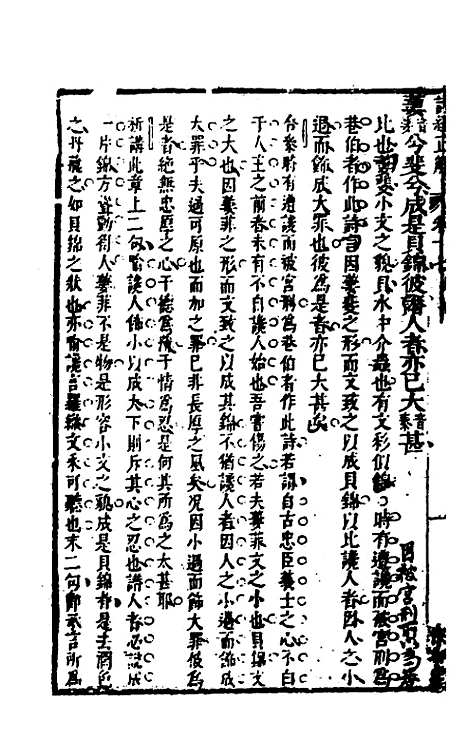 萋兮斐兮成是貝錦彼譖人者亦已大甚
比也萋斐小文之貌貝水中介蟲也有文彩似錦時有遭讒而被宮刑爲
巷伯者作此詩言因萋斐之形而文致之以成貝錦以比讒人者因人之小
過而飾成大罪也彼爲是者亦已大甚矣
合參時有遭讒而被宮刑爲巷伯者作此詩若謂自古忠臣義士之心不白
于人主之前者未有不自讒人始也吾甞傷之若夫萋菲文之小也貝錦文
之大也因萋菲之形而文致之以成其錦不猶讒人者因人之小過而飾成
大罪乎夫過可原也而加之罪已非長厚之風矣况因小過而飾大罪彼爲
是者絶無忠厚之心于德爲薄于情爲忍是何其所爲之太甚耶
析講此章上二句喻讒人飾小以成大下則斥其心之忍也讒人者必說成
一片錦方聳動得人萋菲不是物是形容小文之貌成是貝錦者是去潤色
之丹雘之如貝錦之狀也亦喻讒言羅織文采可聽也末二句即承言所爲